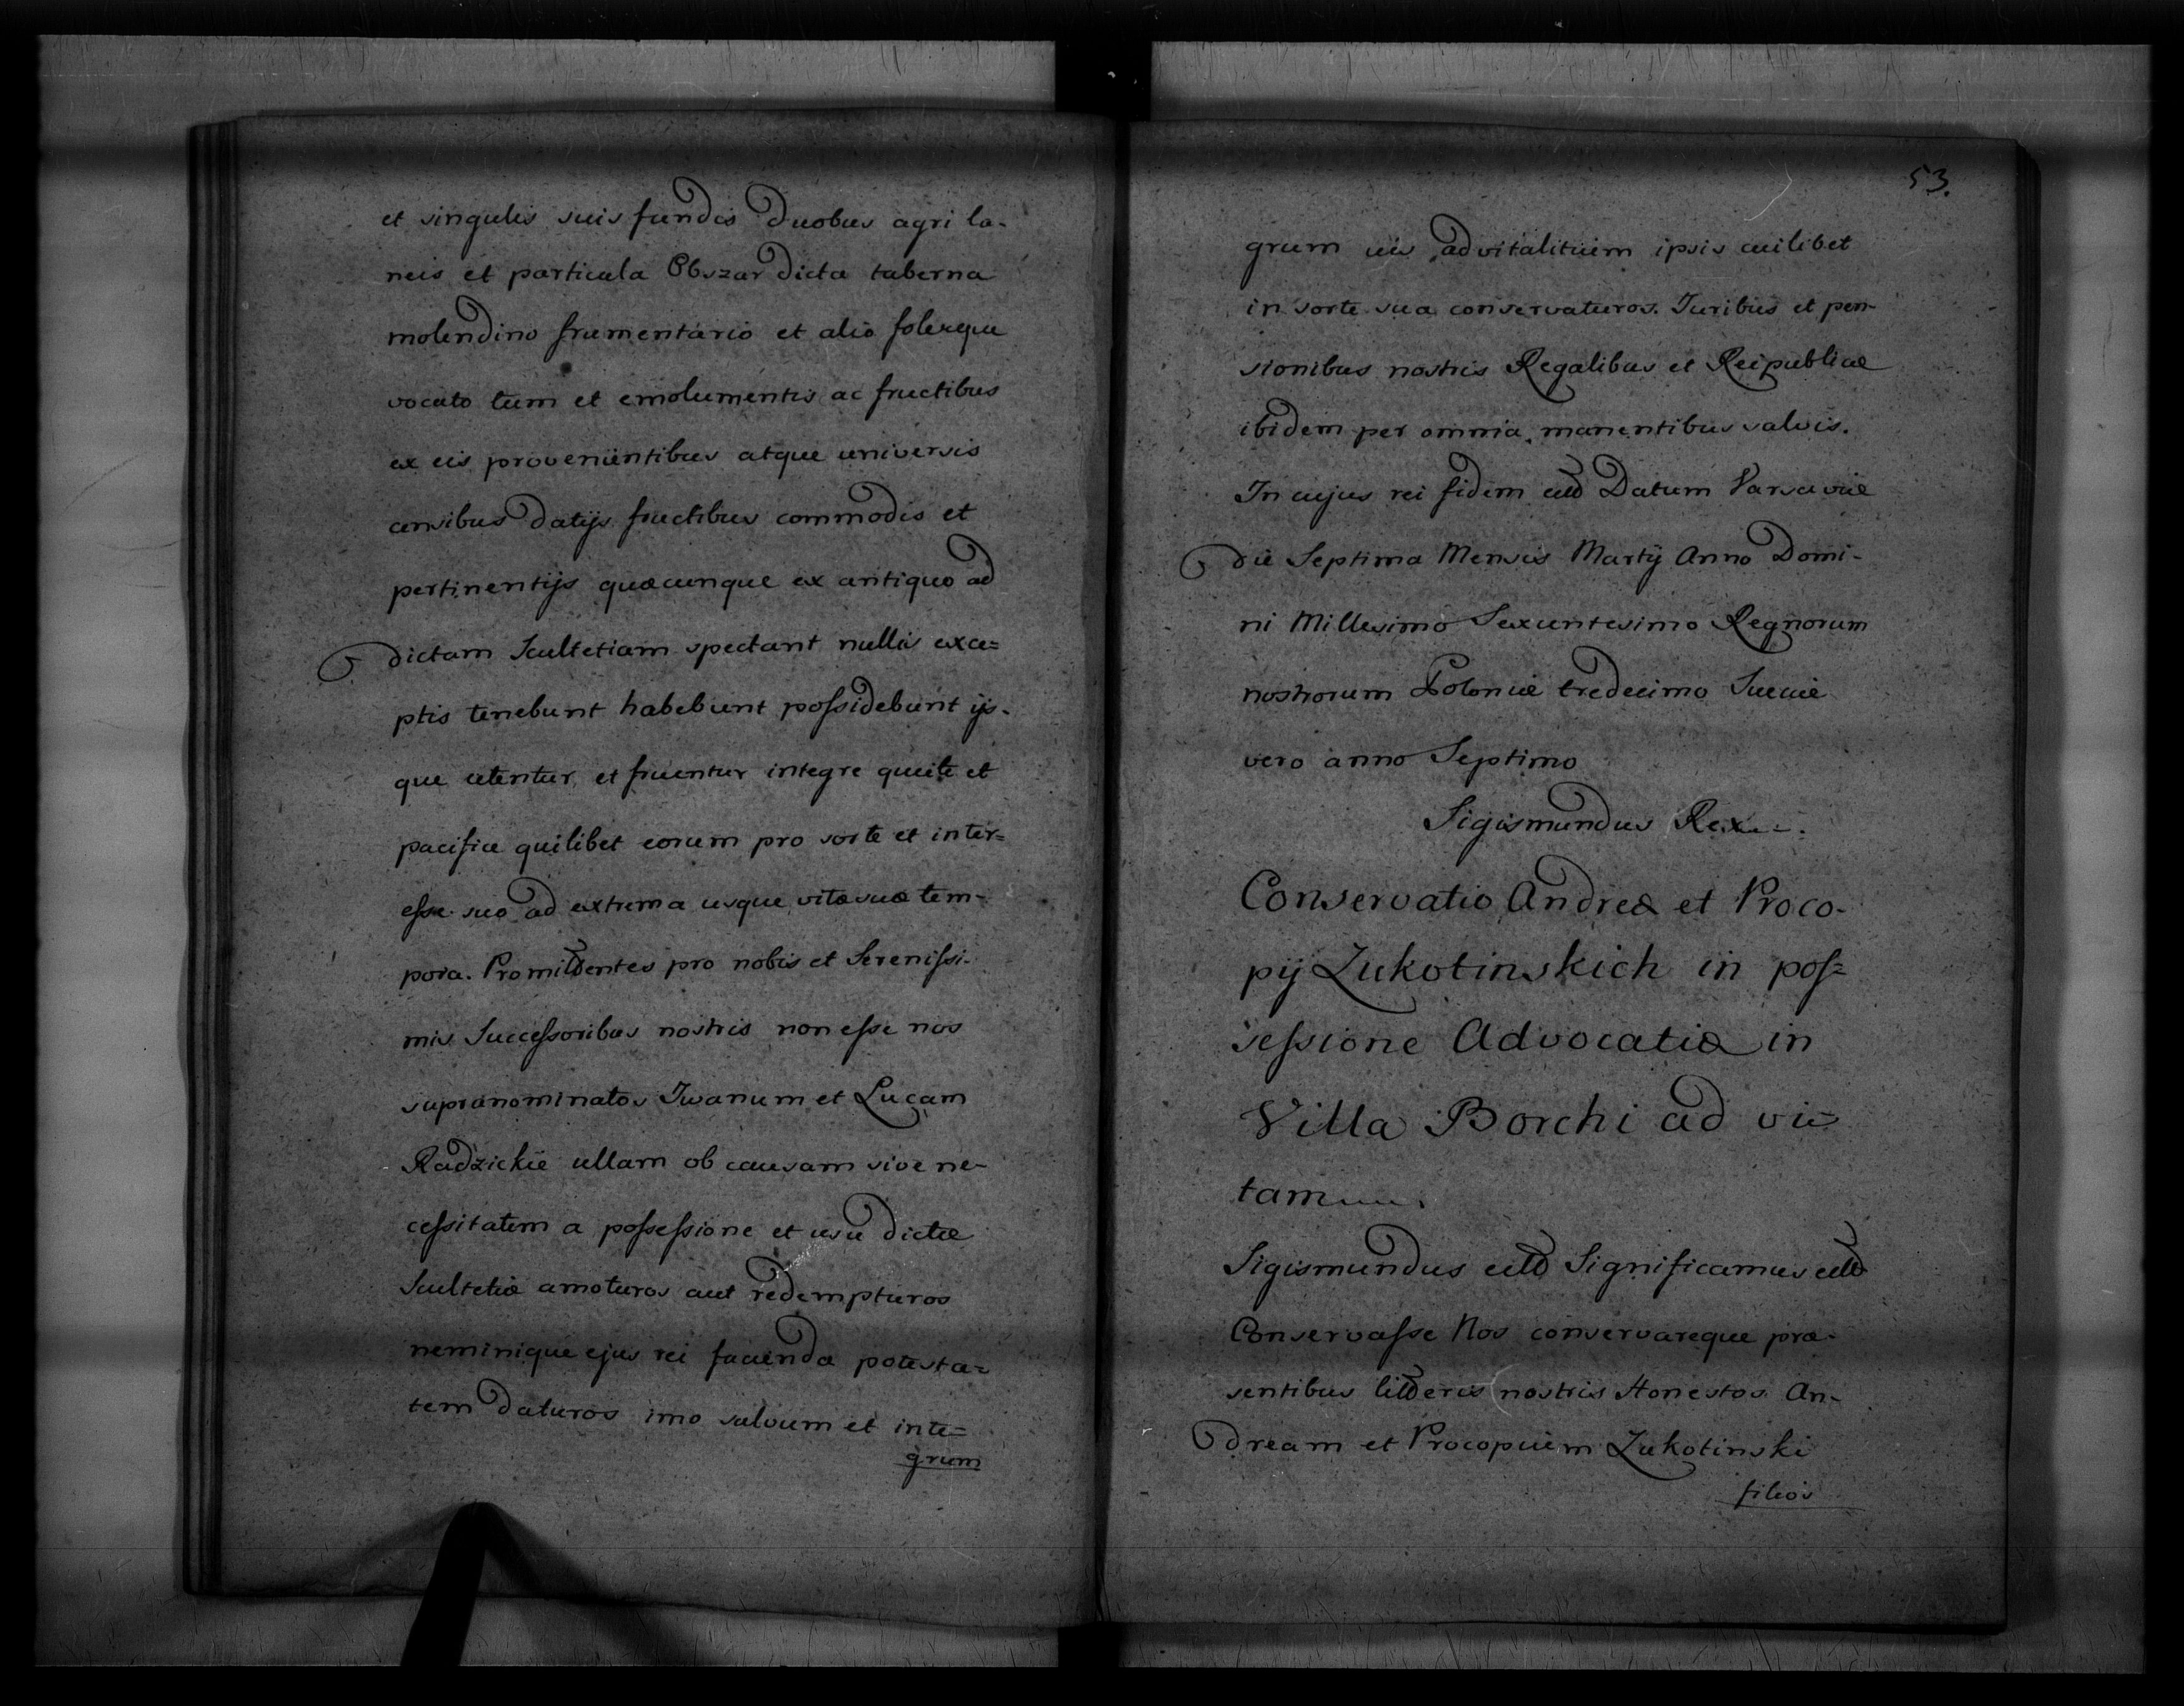 et singulis suis fundis duobus agri la-
neis et particula Obszar dicta taberna
molendino frumentario et alio folusque
vocato tum et emolumentis ac fructibus
ex eis provenientibus atque universis
censibus datijs fructibus commodis et
pertinentijs quæcunque ex antiquo ad
dictam Scultetiam spectant nullis exce=
ptis tenebunt habebunt possidebunt ijs-
que utentur et fruentur integre quiete et
pacifice quilibet eorum pro sorte et inter=
esse suo ad extrema usque vitæ suæ tem-
pora. Promittentes pro nobis et Serenissi-
mis Successoribus nostris non esse nos
supranominatos Iwanum et Lucam
Radzickie ullam ob causam sive ne-
cessitatem a possessione et usu dictæ
Scultetiæ amoturos aut redempturos
neminique ejus rei facienda potesta=
tem daturos imo salvum et inte=
grum
53.
grum jus advitalitium ipsis cuilibet
in sorte sua conservaturos. Juribus et pen-
sionibus nostris Regalibus et Reipublicæ
ibidem per omnia manentibus salvis.
In cujus rei fidem ett Datum Varsaviæ
die Septima Mensis Martij Anno Domi-
ni Millesimo Sexcentesimo Regnorum
nostrorum Poloniæ tredecimo Sueciæ
vero anno Septimo
Sigismundus Rex
Conservatio Andreæ et Proco-
pij Zukotinskich in pos=
sessione Advocatiæ in
Villa Borchi ad vi=
tam
Sigismundus ett Significamus ett
Conservasse Nos conservareque præ-
sentibus litteris nostris Honestos An-
dream et Procopium Zukotinski
filios